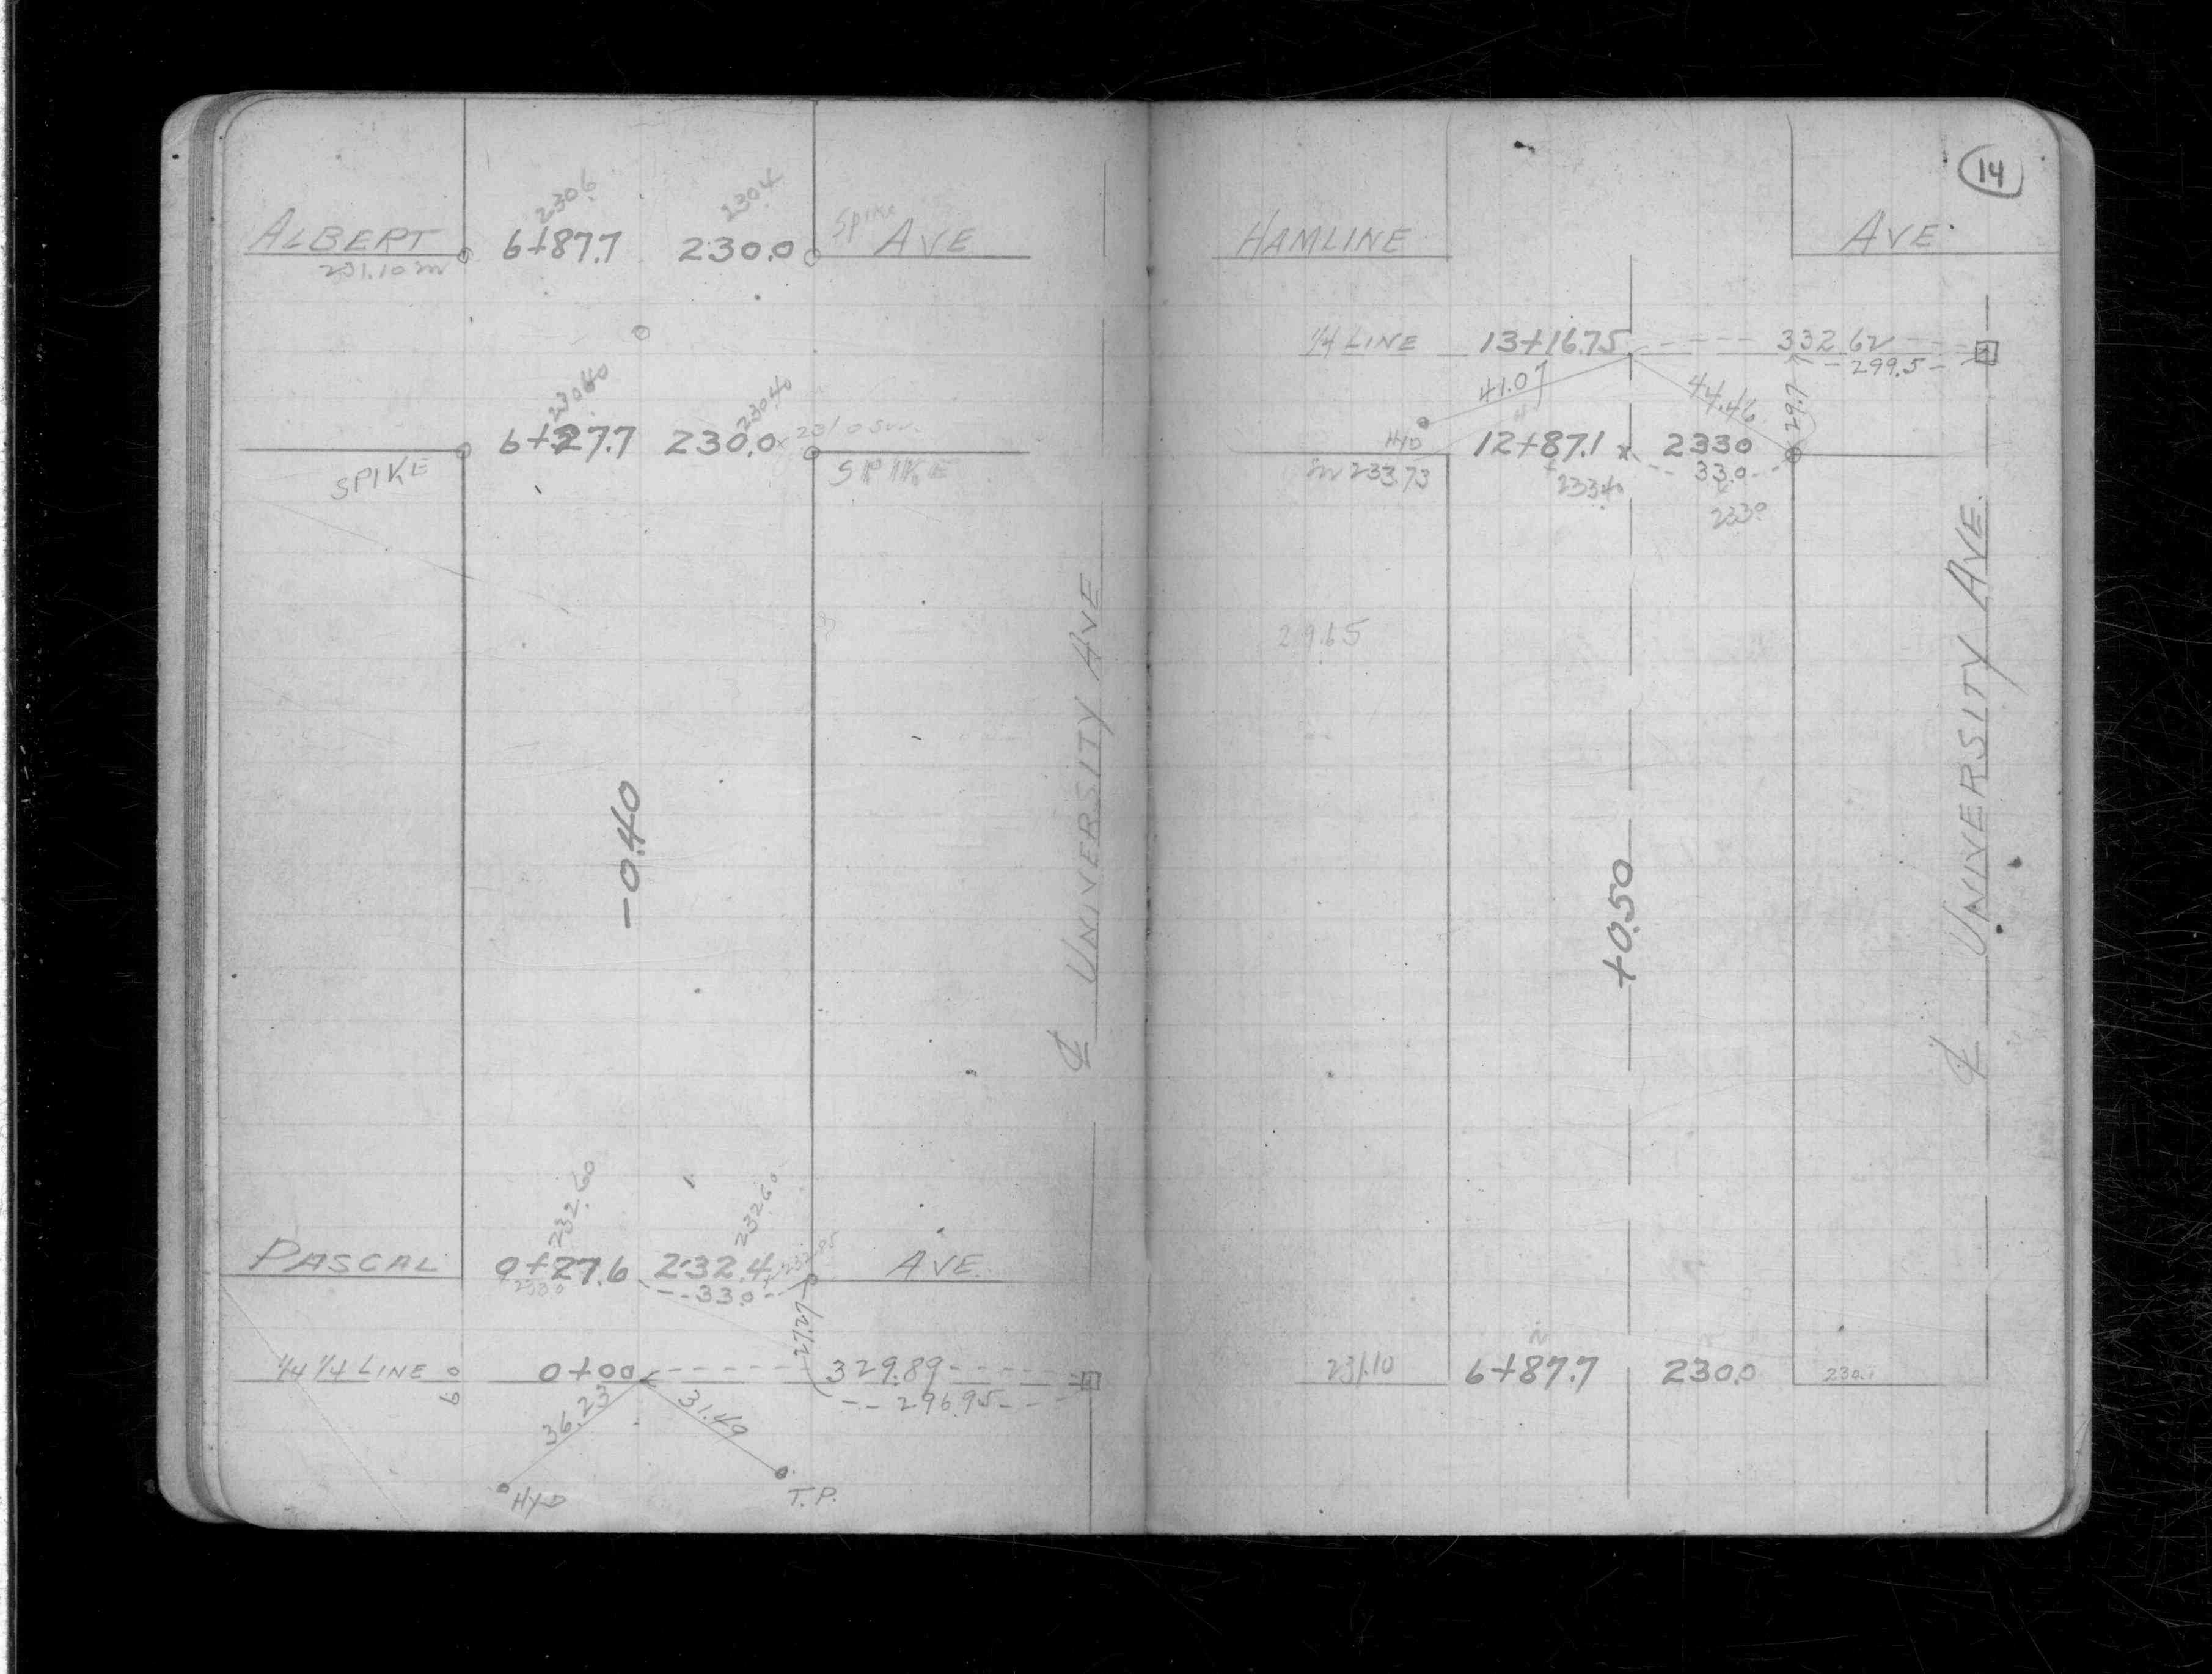 2306
2304
Spike
ALBERT 6+87.7 230.0 AVE
231.10 m
23040
230.40
6+27.7 230.0
SPIKE
SPIKE
-0.40
℄ UNIVERSITY AVE
232.60
232.60
PASCAL 0+27.6 232.4 AVE.
233.0
--33.0--
27.27
1/4 1/4 LINE 0+00 329.89
60
296.95
36.23
31.49
HYD
T.P.
14
HAMLINE AVE.
1/4 LINE 13+16.75 332.62
299.5
41.07
44.46
29.7
HYD 12+87.1 x 2330
233.73
33.0
2334
2330
29.65
+0.50
℄ UNIVERSITY AVE.
231.10 6+87.7 230.0